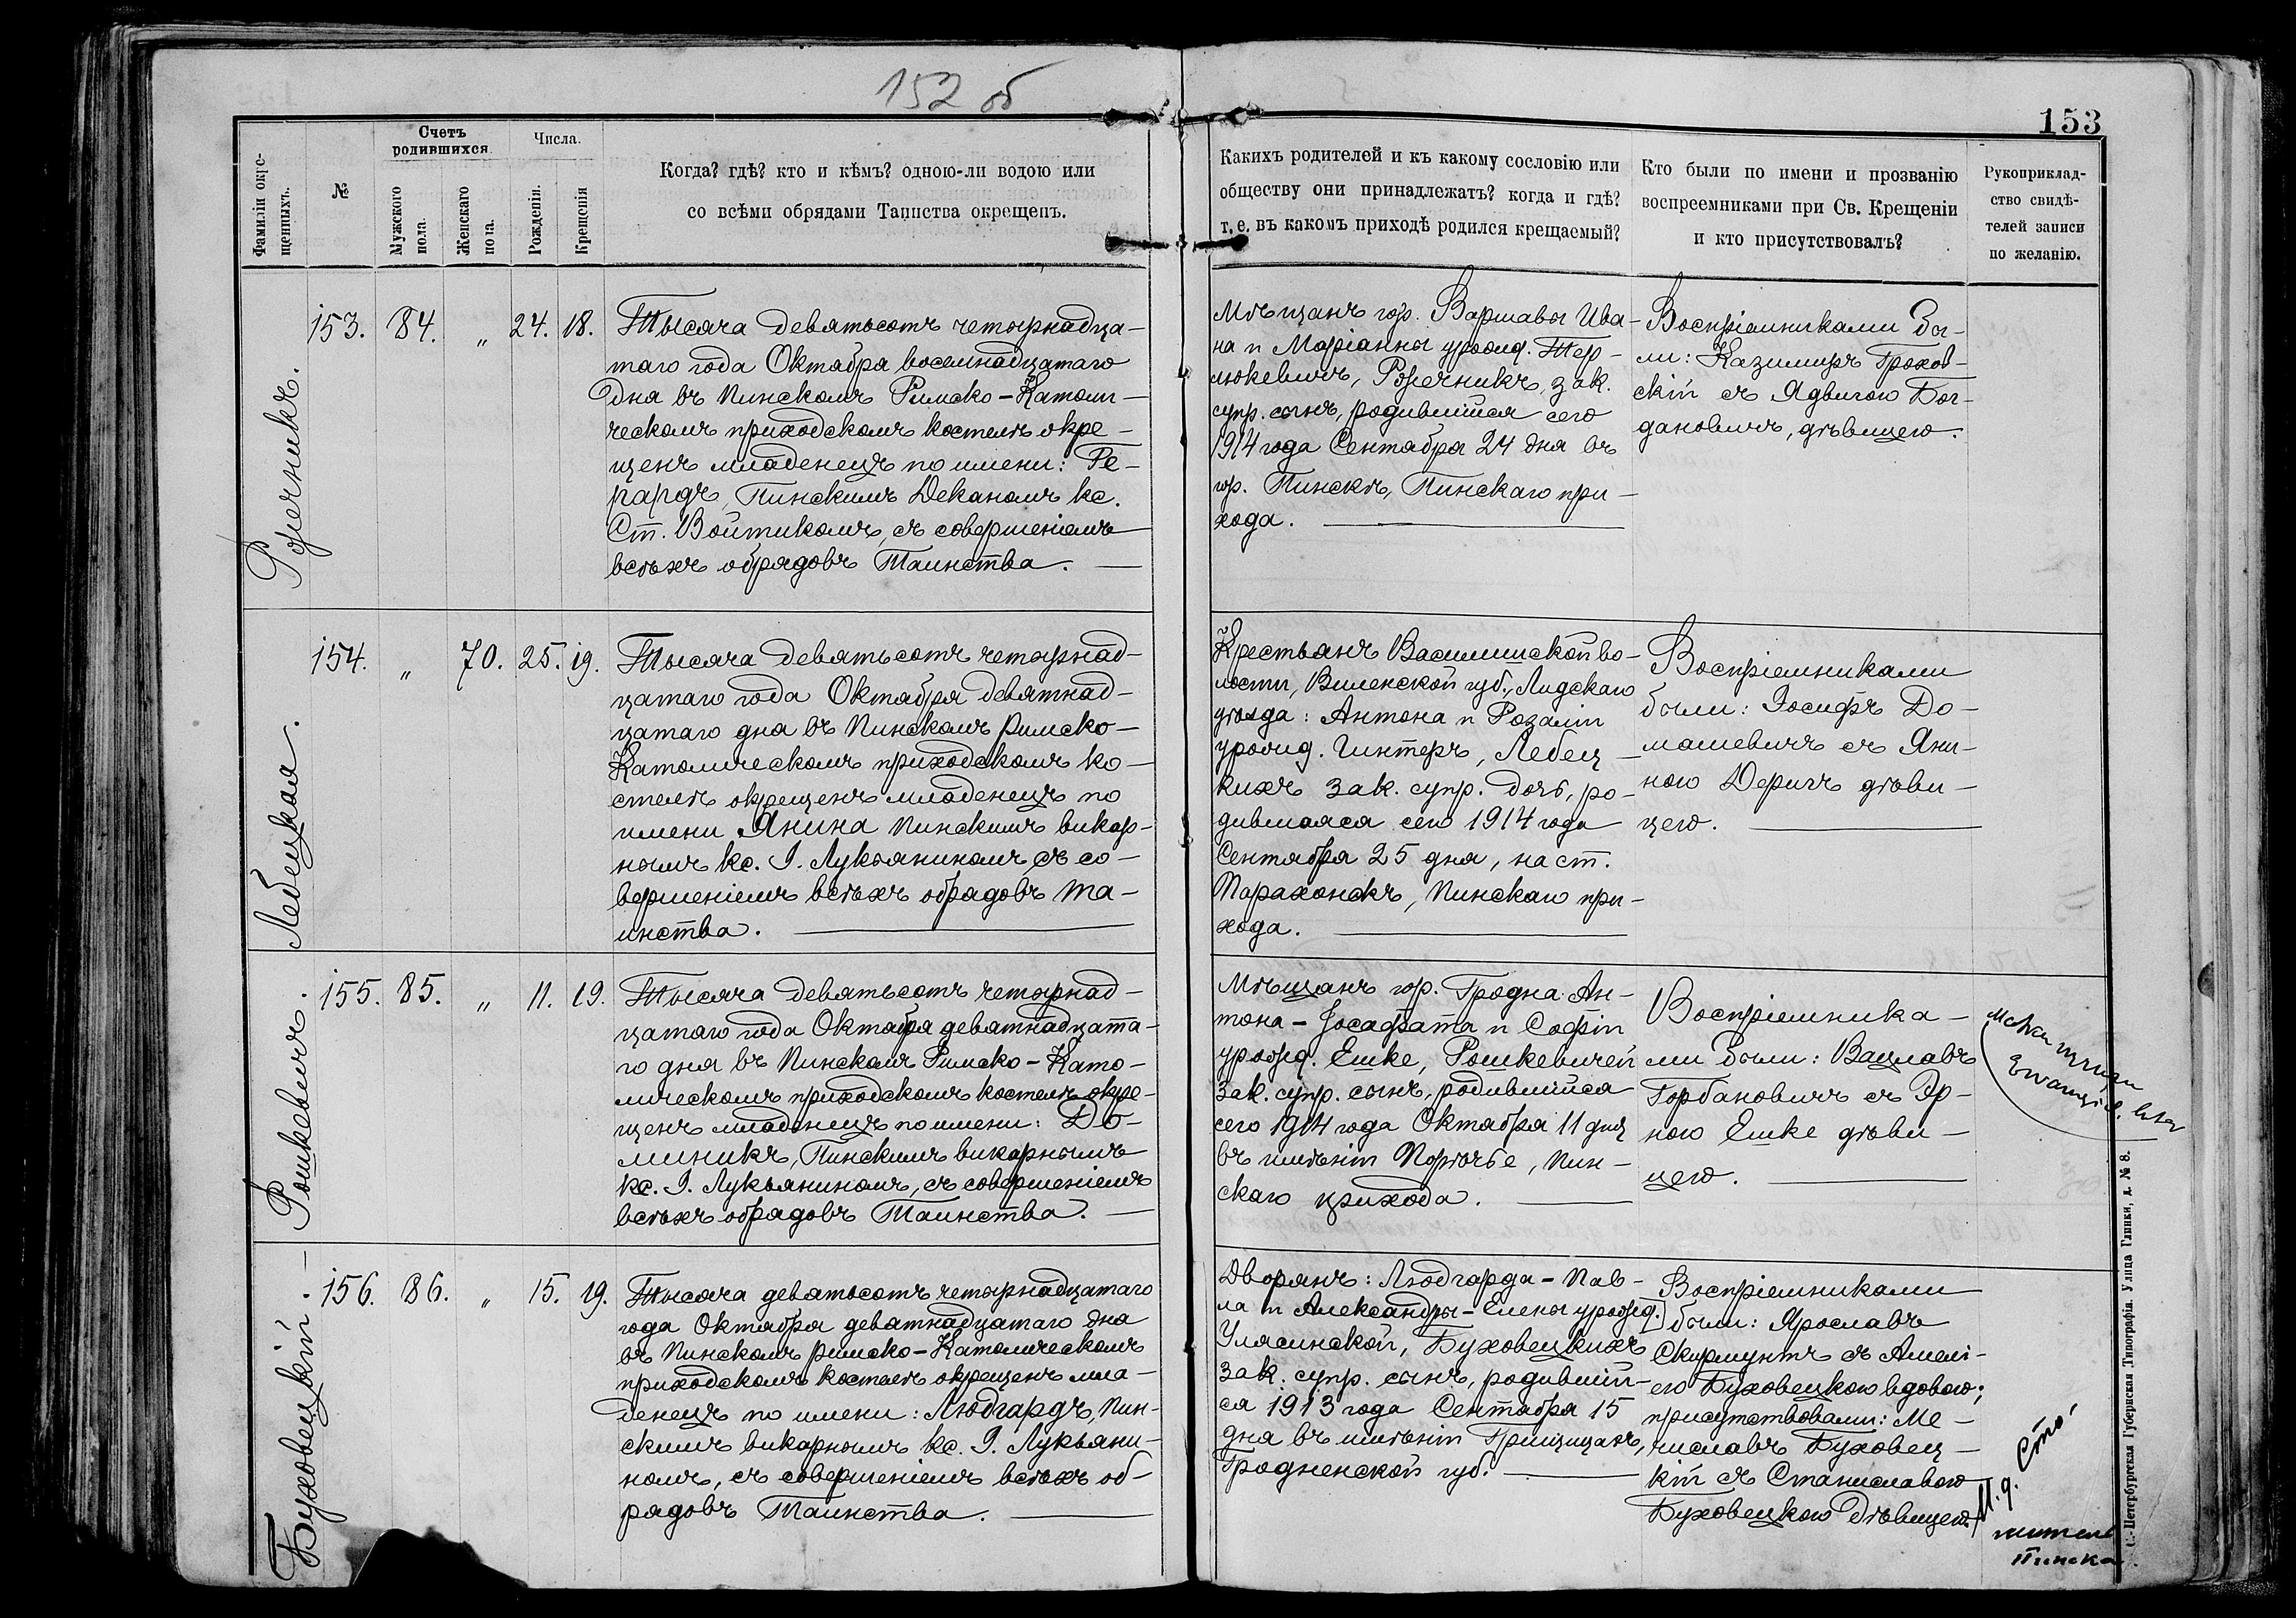 152 об
153
Фамиліи окре-
щенныхъ.
№
Счетъ
родившихся.
Мужского
пола.
Женскаго
пола.
Числа.
Рожденія.
Крещенія
Когда? гдѣ? кто и кѣмъ? одною-ли водою или
со всѣми обрядами Таинства окрещенъ.
Какихъ родителей и къ какому сословію или
обществу они принадлежатъ? когда и гдѣ?
т. е. въ какомъ приходѣ родился крещаемый?
Кто были по имени и прозванію
воспреемниками при Св. Крещеніи
и кто присутствовалъ?
Рукоприклад-
ство свидѣ-
телей записи
по желанію.
153. 84. „ 24. 18.
Тысяча девятьсотъ четырнадца-
таго года Октября восемнадцатаго
дня въ Пинскомъ Римско-Католи-
ческомъ приходскомъ костелѣ окре-
щенъ младенецъ по имени: Ге-
рардъ, Пинскимъ Деканомъ кс.
Ст. Войтикомъ, съ совершеніемъ
всѣхъ обрядовъ Таинства.
Мѣщанъ гор. Варшавы Ива-
на и Маріанны урожд. Тер-
люкевичъ, зак.
супр. сынъ, родившійся сего
1914 года Сентября 24 дня въ
гор. Пинскѣ, Пинскаго при-
хода.
Воспріемниками бы-
ли: Казимиръ Грохов-
скій съ Ядвигою Бог-
дановичъ, дѣвицею.
Лебецкая.
154. „ 70. 25. 19.
Тысяча девятьсотъ четырнад-
цатаго года Октября девятнад-
цатаго дня въ Пинскомъ Римско-
Католическомъ приходскомъ ко-
стелѣ окрещенъ младенецъ по
имени Янина Пинскимъ викар-
нымъ кс. І. Лукьяниномъ, съ со-
вершеніемъ всѣхъ обрядовъ Та-
инства.
Крестьянъ Василишской во-
лости, Виленской губ., Лидскаго
уѣзда: Антона и Розаліи
урожд. Гинтеръ, Лебец-
кихъ зак. супр. дочь, ро-
дившаяся сего 1914 года
Сентября 25 дня, на ст.
Парахонскъ, Пинскаго при-
хода.
Воспріемниками
были: Іосифъ До-
машевичъ съ Яни-
ною Деричъ дѣви-
цею.
Рошкевичъ.
155. 85. „ 11. 19.
Тысяча девятьсотъ четырнад-
цатаго года Октября девятнадцата-
го дня въ Пинскомъ Римско-Като-
лическомъ приходскомъ костелѣ окре-
щенъ младенецъ по имени: До-
миникъ, Пинскимъ викарнымъ
кс. І. Лукьяниномъ, съ совершеніемъ
всѣхъ обрядовъ Таинства.
Мѣщанъ гор. Гродна Ан-
тона-Іосафата и Софіи
урожд. Ешке, Рошкевичей
зак. супр. сынъ, родившійся
сего 1914 года Октября 11 дня
въ имѣніи Порѣчье, Пин-
скаго прихода.
Воспріемника-
ми были: Вацлавъ
Горбановичъ съ Эр-
ною Ешке дѣви-
цею.
Буховецкій.
156. 86. „ 15. 19.
Тысяча девятьсотъ четырнадцатаго
года Октября девятнадцатаго дня
въ Пинскомъ Римско-Католическомъ
приходскомъ костелѣ окрещенъ мла-
денецъ по имени: Людгардъ, Пин-
скимъ викарнымъ кс. І. Лукьяни-
номъ, съ совершеніемъ всѣхъ об-
рядовъ Таинства.
Дворянъ: Людгарда-Пав-
ла и Александры-Елены урожд.
Улясинской, Буховецкихъ
зак. супр. сынъ, родившій-
ся 1913 года Сентября 15
дня въ имѣніи
Гродненской губ.
Воспріемниками
были: Ярославъ
Скирмунтъ съ Амелі-
ею Буховецкою вдовою;
присутствовали: Ме-
числавъ Буховец-
кій съ Станиславою
Буховецкою дѣвицею.
Пинска
С.-Петербургская Губернская Типографія. Улица Глинки, д. № 8.